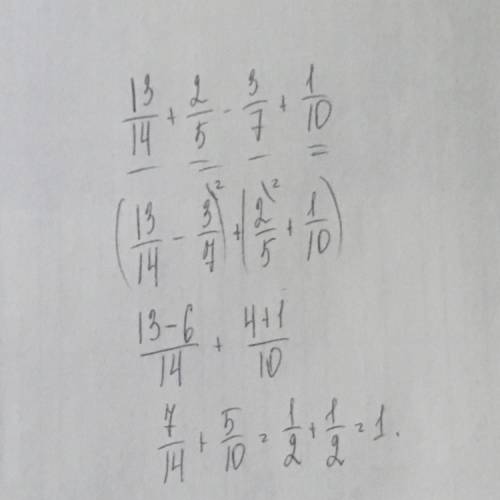 13/14 + 2/5 - 3/7 + 1/10
(13/14 - 3\²/7) + (2\²/5 + 1/10)
13-6/14 + 4+1/10
7/14 + 5/10 = 1/2 + 1/2 = 1.